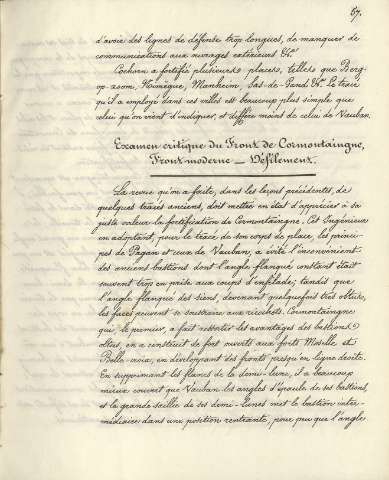 67.
d'avoir des lignes de défense trop longues, de manquer de
communications aux ouvrages extérieurs &a.
Cochorn a fortifié plusieurs places, telles que Berg-
op-zoom, Nimègue, Manheim, Sas-de-Gand &a. Le tracé
qu'il a employé dans ces villes est beaucoup plus simple que
celui qu'on vient d'indiquer, et diffère moins de celui de Vauban.
Examen critique du Front de Cormontaingne,
Front moderne — Défilement.
La revue qu'on a faite, dans les leçons précédentes, de
quelques tracés anciens, doit mettre en état d'apprécier à sa
juste valeur la fortification de Cormontaingne. Cet Ingénieur
en adoptant, pour le tracé de son corps de place, les princi-
pes de Pagan et ceux de Vauban, a évité l'inconvénient
des anciens bastions dont l'angle flanqué constant était
souvent trop en prise aux coups d'enfilade; tandis que
l'angle flanqué des siens, devenant quelquefois très obtus,
les faces peuvent se soustraire aux ricochets. Cormontaingne
qui, le premier, a fait ressortir les avantages des bastions
obtus, en a construit de fort ouverts aux forts Moselle et
Belle-croix, en développant des fronts presqu'en ligne droite.
En supprimant les flancs de la demi-lune, il a beaucoup
mieux couvert que Vauban les angles d'épaule de ses bastions,
et la grande saillie de ses demi-lunes met le bastion inter-
médiaire dans une position rentrante, pour peu que l'angle